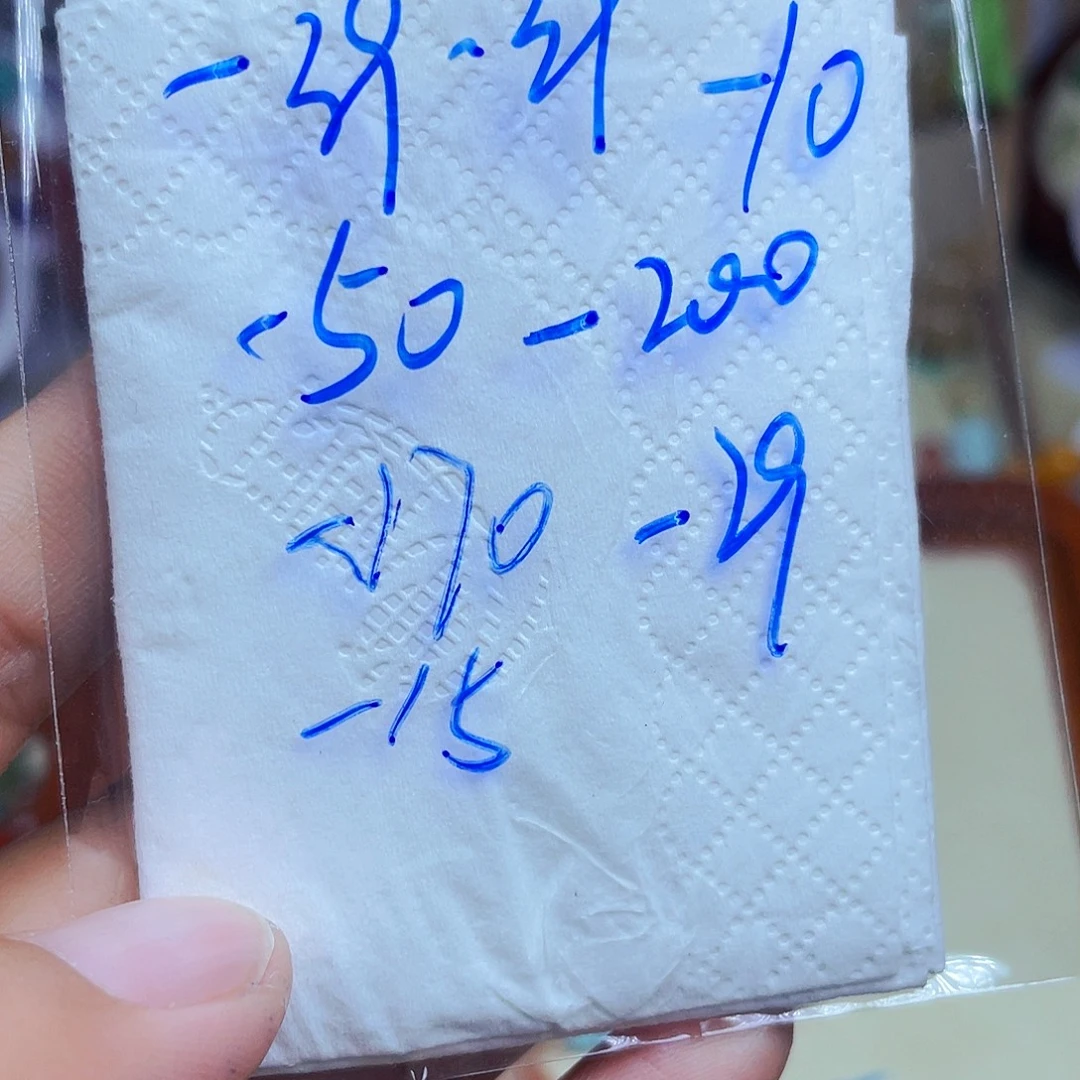 -39 -31 -10
-50 -200
-170 -29
-15